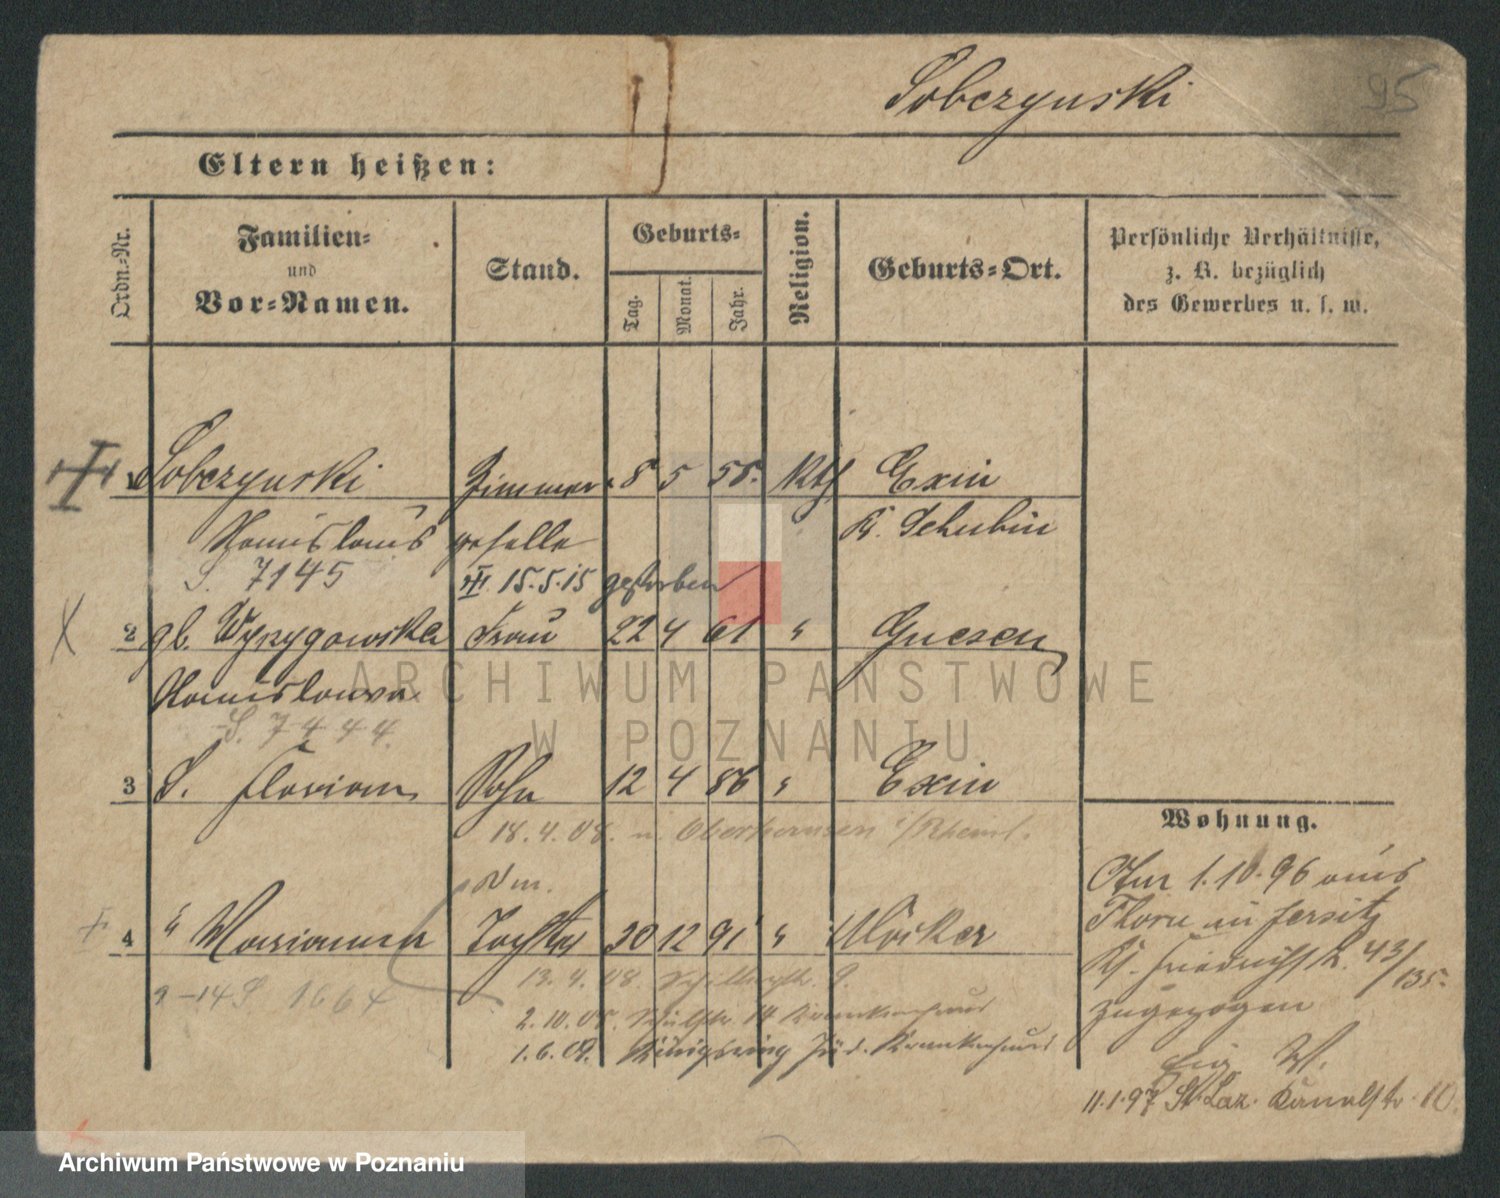 Sobczynski
95
Eltern heißen:
Ordn.-Nr.
Familien-
und
Vor-Namen.
Stand.
Geburts-
Tag.
Monat.
Jahr.
Religion.
Geburts-Ort.
Persönliche Verhältnisse,
z. B. bezüglich
des Gewerbes u. s. w.
1 Sobczynski Zimmer- 8 5 58. Kth Exin
Stanislaus geselle K. Schubin
S. 7145 15.5.15 gestorben
2 gb. Wyrzygowska Frau 22 4 61 " Gnesen
Stanislawa
S. 7444.
3 S. Florian Sohn 12 4 86 " Exin
18.4.08. n. Oberhausen i/Rheinl.
4 " Marianna Tochter 30 12 91 " Mocker
13.4.08. 9.
S. 1664
2.10.08. 14 Krankenhaus
1.6.09. Königsring Jüd. Krankenhaus
Wohnung.
Am 1.10.96 aus
Thorn in Jersitz
Friedrichstr. 43/135.
zugezogen
11.1.97 St. Laz. Kanalstr. 10.
ARCHIWUM PAŃSTWOWE
W POZNANIU
Archiwum Państwowe w Poznaniu